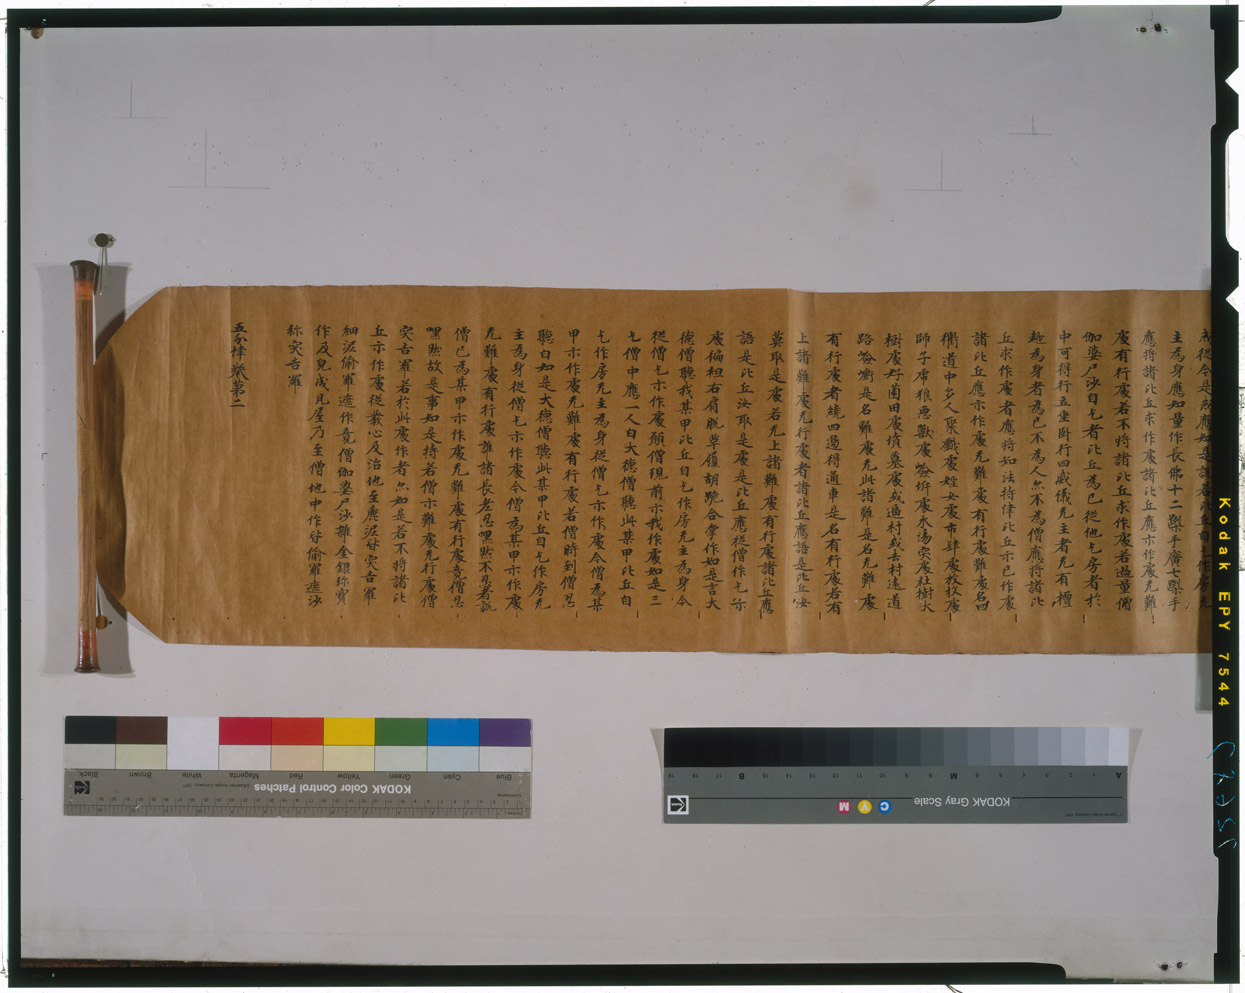 戒從今是戒應如是說若比丘自乞作房无
主為身應如量作長佛十二磔手廣七磔手
應將諸比丘求作處諸比丘應示作處无難
處有行處若不將諸比丘求作處若過量僧
伽婆尸沙自乞者比丘為己從他乞房者於
中可得行立坐卧行四威儀无主者无有檀
越為身者為己不為人亦不為僧應將諸比
丘求作處者應將如法持律比丘示已作處
諸比丘應示作處无難處有行處難處名四
衢道中多人聚戲處婬女處市肆處放牧處
師子虎狼惡獸處嶮岸處水湯突處社樹大
樹處好園田處墳墓處或過村或去村遠道
路嶮是名難處无此諸難是名无難處
有行處者繞四邊得通車是名有行處若有
上諸難處无行處者諸比丘應語是比丘汝
莫取是處若无上諸難處有行處諸比丘應
語是比丘汝取是處是比丘應從僧作乞示
處偏袒右肩脫革屣胡跪合掌作如是言大
德僧聽我某甲比丘自乞作房无主為身今
從僧乞示作處願僧現前示我作處如是三
乞僧中應一人白大德僧聽此某甲比丘自
乞作房无主為身從僧乞示作處今僧為某
甲示作處无難處有行處若僧時到僧忍
聽白如是大德僧聽此某甲比丘自乞作房无
主為身從僧乞示作處今僧為某甲示作處
无難處有行處誰諸長老忍嘿然不忍者說
僧已為某甲示作處无難處有行處竟僧忍
嘿然故是事如是持若僧示難處无行處僧
突吉羅若於此處作者亦如是若不將諸比
丘示作處從發心及治地至麁泥皆突吉羅
細泥偷羅遮作竟僧伽婆尸沙雜金銀珍寶
作及完成瓦屋乃至僧地中作皆偷羅遮沙
弥突吉羅
五分律卷第二
Kodak EPY 7544
KODAK Color Control Patches
Blue Cyan Green Yellow Red Magenta White Brown Black
KODAK Gray Scale
C Y M
A 1 2 3 4 5 6 M 8 9 10 11 12 13 14 15 B 17 18 19